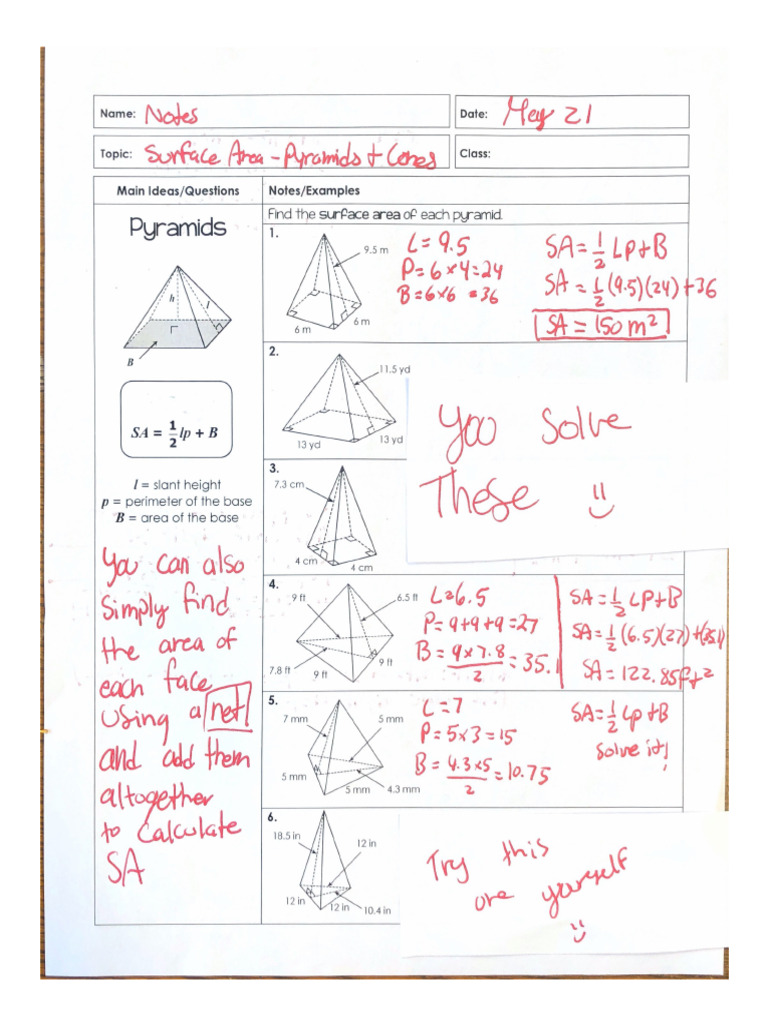 Name: Notes
Date: May 21
Topic: Surface Area - Pyramids + Cones
Class:
Main Ideas/Questions
Notes/Examples
Pyramids
h
l
B
SA = 1/2 lp + B
l = slant height
p = perimeter of the base
B = area of the base
You can also
simply find
the area of
each face
using a net
and add them
altogether
to calculate
SA
Find the surface area of each pyramid.
1.
9.5 m
6 m
6 m
L = 9.5
P = 6 x 4 = 24
B = 6x6 = 36
SA = 1/2 Lp + B
SA = 1/2 (9.5)(24) + 36
SA = 150 m²
2.
11.5 yd
13 yd
13 yd
3.
7.3 cm
4 cm
4 cm
You solve
These
4.
9 ft
6.5 ft
7.8 ft
9 ft
9 ft
L = 6.5
P = 9+9+9 = 27
B = 9 x 7.8 / 2 = 35.1
SA = 1/2 LP + B
SA = 1/2 (6.5)(27) + (35.1)
SA = 122.85 ft²
5.
7 mm
5 mm
5 mm
5 mm
4.3 mm
L = 7
P = 5 x 3 = 15
B = 4.3 x 5 / 2 = 10.75
SA = 1/2 Lp + B
Solve it!
6.
18.5 in
12 in
12 in
12 in
10.4 in
Try this
one yourself